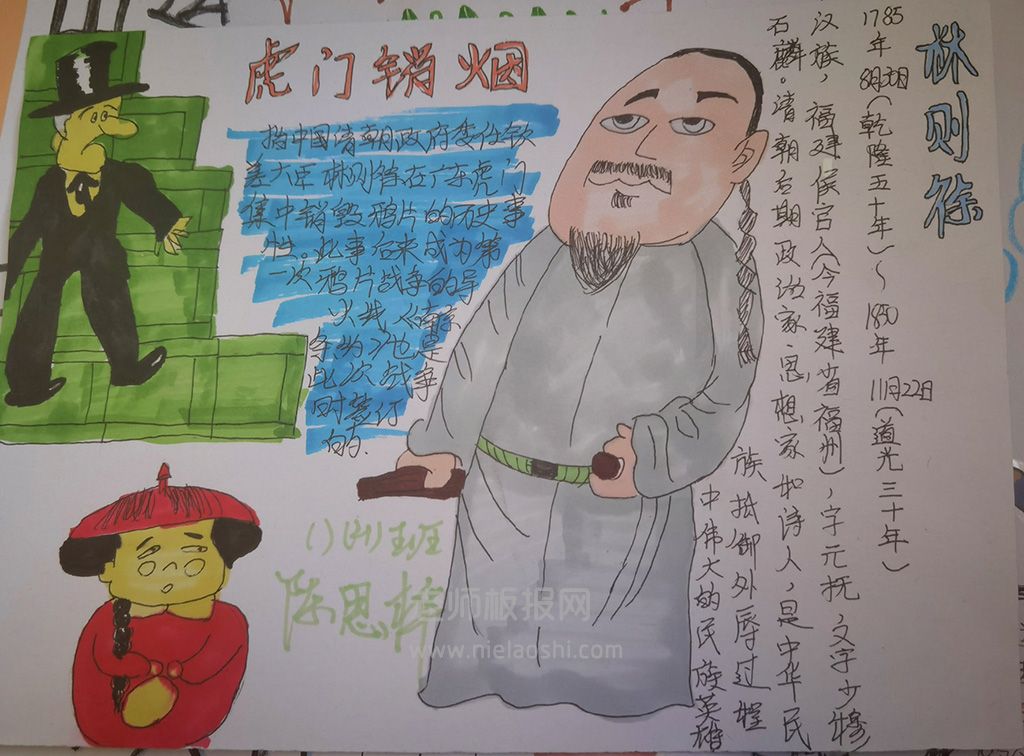 虎门销烟
指中国清朝政府委任钦
差大臣林则徐在广东虎门
集中销毁鸦片的历史事
件。此事后来成为第
一次鸦片战争的导
火线《南京
条约》也是
此次战争
时签订
的.
林则徐
1785年8月30日(乾隆五十年)~1850年11月22日(道光三十年)
汉族,福建侯官人(今福建省福州),字元抚,又字少穆
石麟。清朝后期政治家、思想家和诗人,是中华民
族抵御外辱过程
中伟大的民族英雄
陈思梓
师板报网
www.nielaoshi.com